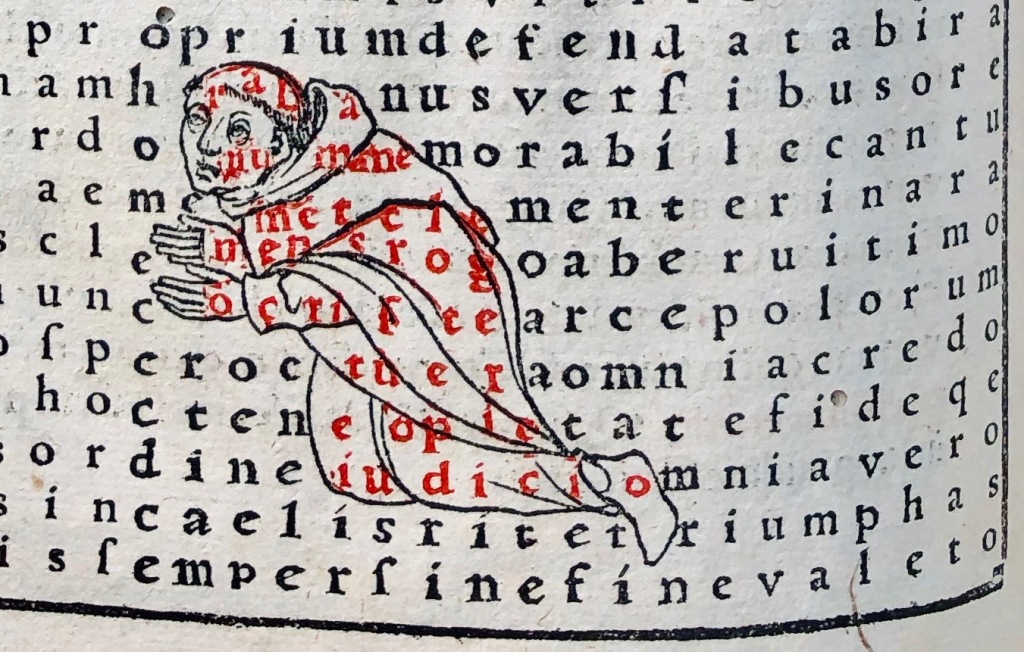 propriumdefendatabira
namhrabanusverſibusore
rdonummemorabilecantu
aememetclementerinara
sclemensrogoaberuitimo
uncocriſtearcepolorum
oſperoctueraomniacredo
hocteneopietatefideqe
sordineiudiciomniavero
sincaelisritetriumphas
isſemperſinefinevaleto